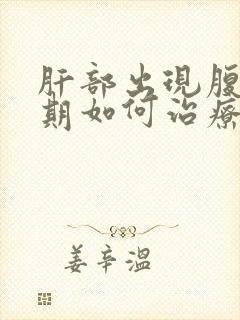 肝部出現腹
期如何治療
姜辛溫